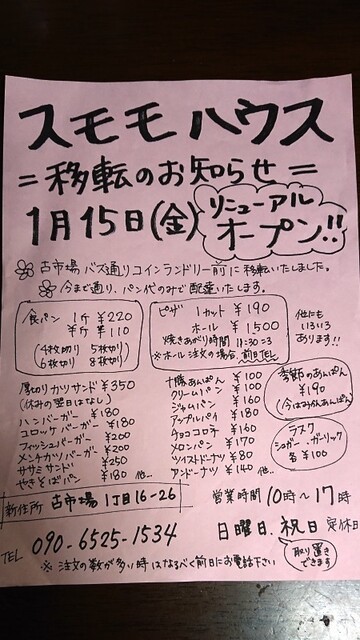 スモモ ハウス
= 移転のお知らせ =
1月15日(金) リニューアルオープン!!
古市場 バス通りコインランドリー前に移転いたしました。
今まで通り、パン代のみで配達いたします。
食パン 1斤 ¥220
½斤 ¥110
(4枚切り 5枚切り
6枚切り 8枚切り)
ピザ 1カット ¥190
ホール ¥1500
焼きあがり時間 11:30=3
※ホール注文の場合、前日TEL
他にも
いろいろ
あります!!
厚切りカツサンド ¥350
(休みの翌日はなし)
ハンバーガー ¥180
コロッケバーガー ¥180
フィッシュバーガー ¥200
メンチカツバーガー ¥200
ササミサンド ¥250
やきそばパン ¥180 他..
十勝あんぱん ¥100
クリームパン ¥100
ジャムパン ¥160
アップルパイ ¥180
チョココロネ ¥160
メロンパン ¥170
ツイストドーナツ ¥80
アンドーナツ ¥140 他..
季節のあんぱん
¥190
(今はみかんあんぱん)
ラスク
シュガー・ガーリック
各¥100
新住所 古市場1丁目16-26
営業時間 10時〜17時
TEL 090-6525-1534
日曜日、祝日 定休日
※ 注文の数が多い時はなるべく前日にお電話下さい
取り置きできます